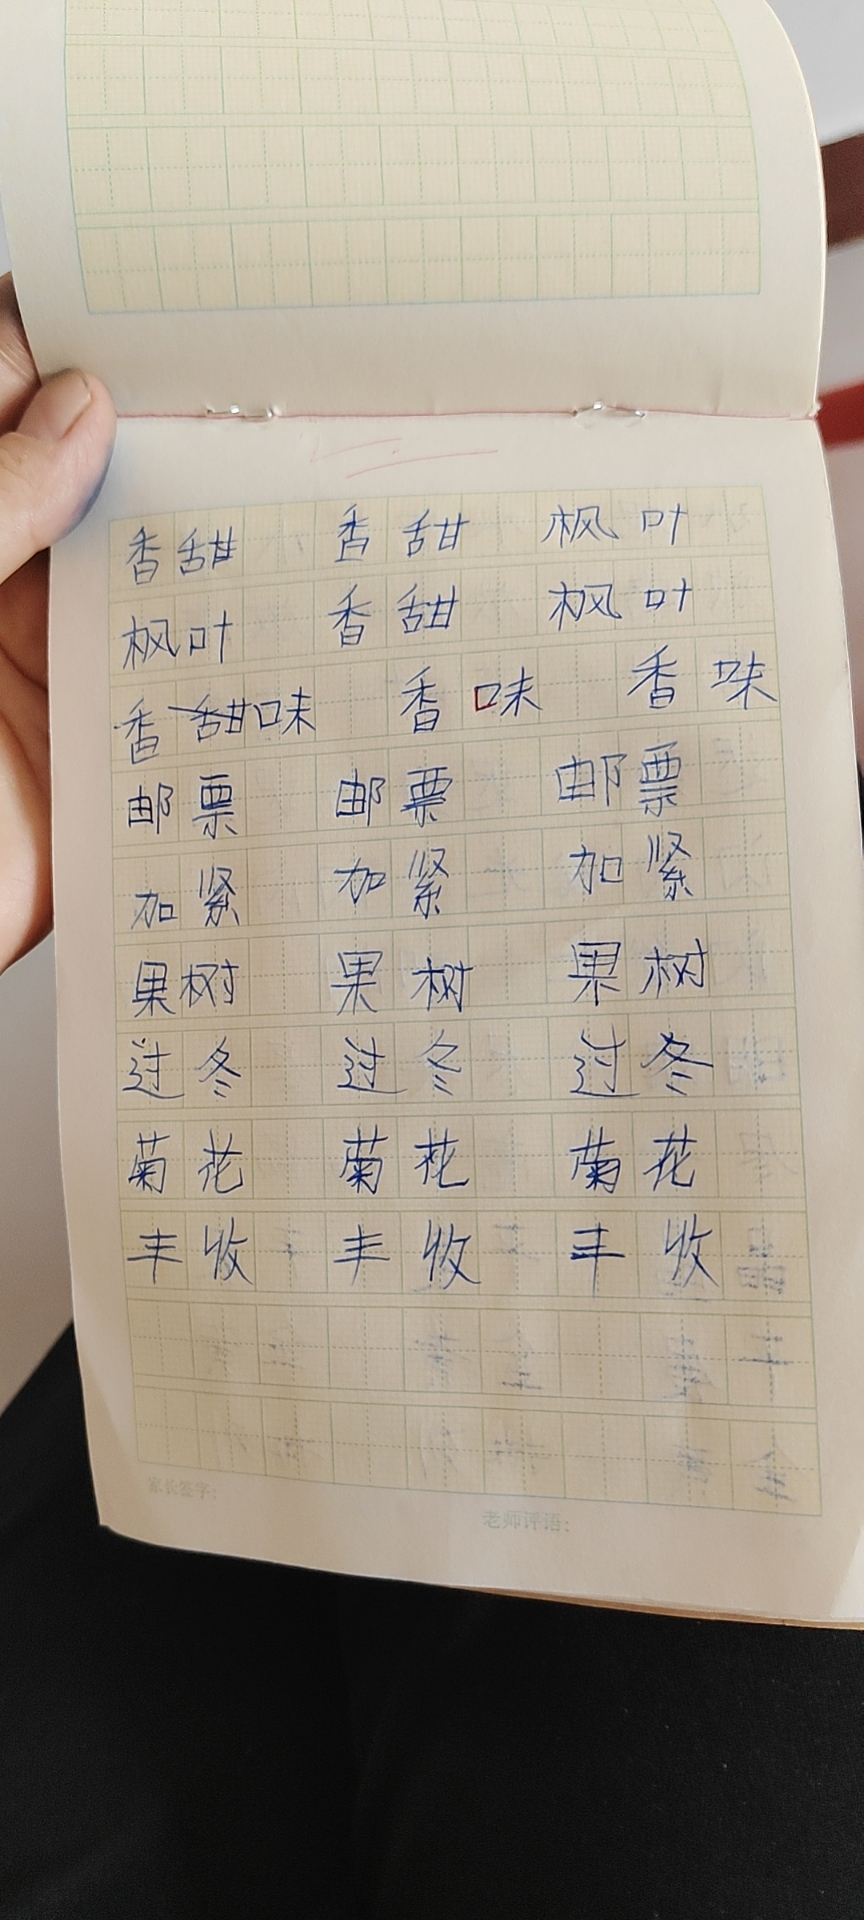 香甜 香甜 枫叶
枫叶 香甜 枫叶
香甜味 香味 香味
邮票 邮票 邮票
加紧 加紧 加紧
果树 果树 果树
过冬 过冬 过冬
菊花 菊花 菊花
丰收 丰收 丰收
家长签字:
老师评语: